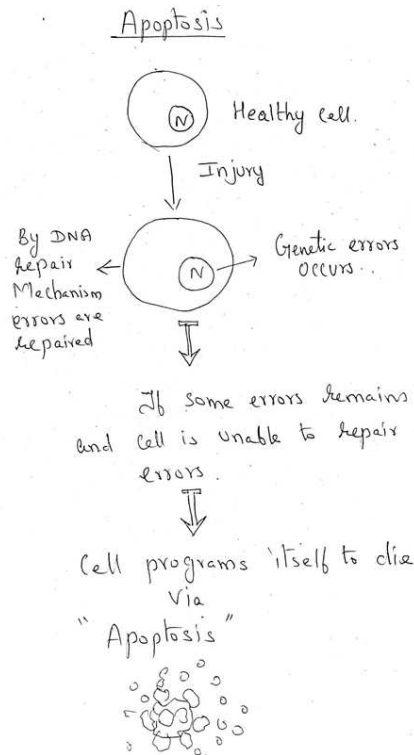 Apoptosis
N
Healthy cell.
Injury
By DNA
repair
Mechanism
errors are
repaired
N
Genetic errors
occurs..
If some errors remains
and cell is unable to repair
errors.
Cell programs itself to die
Via
"Apoptosis"